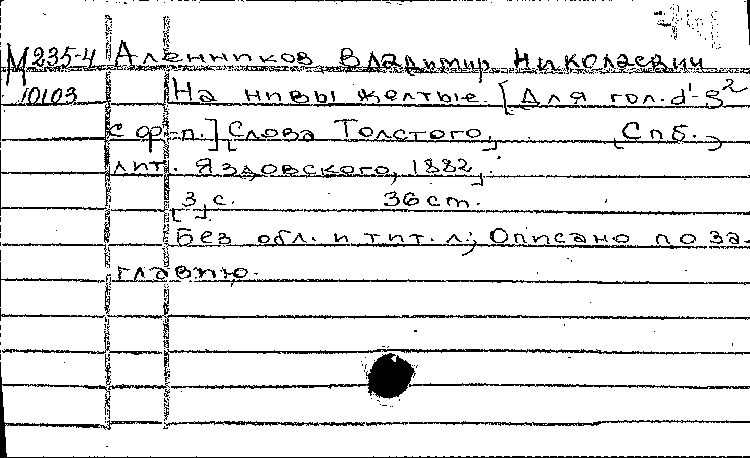 М235-4 Аленников Владимир Николаевич
10103 На нивы желтые. [Для гол. d¹-g²
с ф-п.] [Слова Толстого,] [Спб.]
лит. Яздовского, 1882].
[3] с. 36 ст.
Без обл. и тит. л.; Описано по за-
главию.